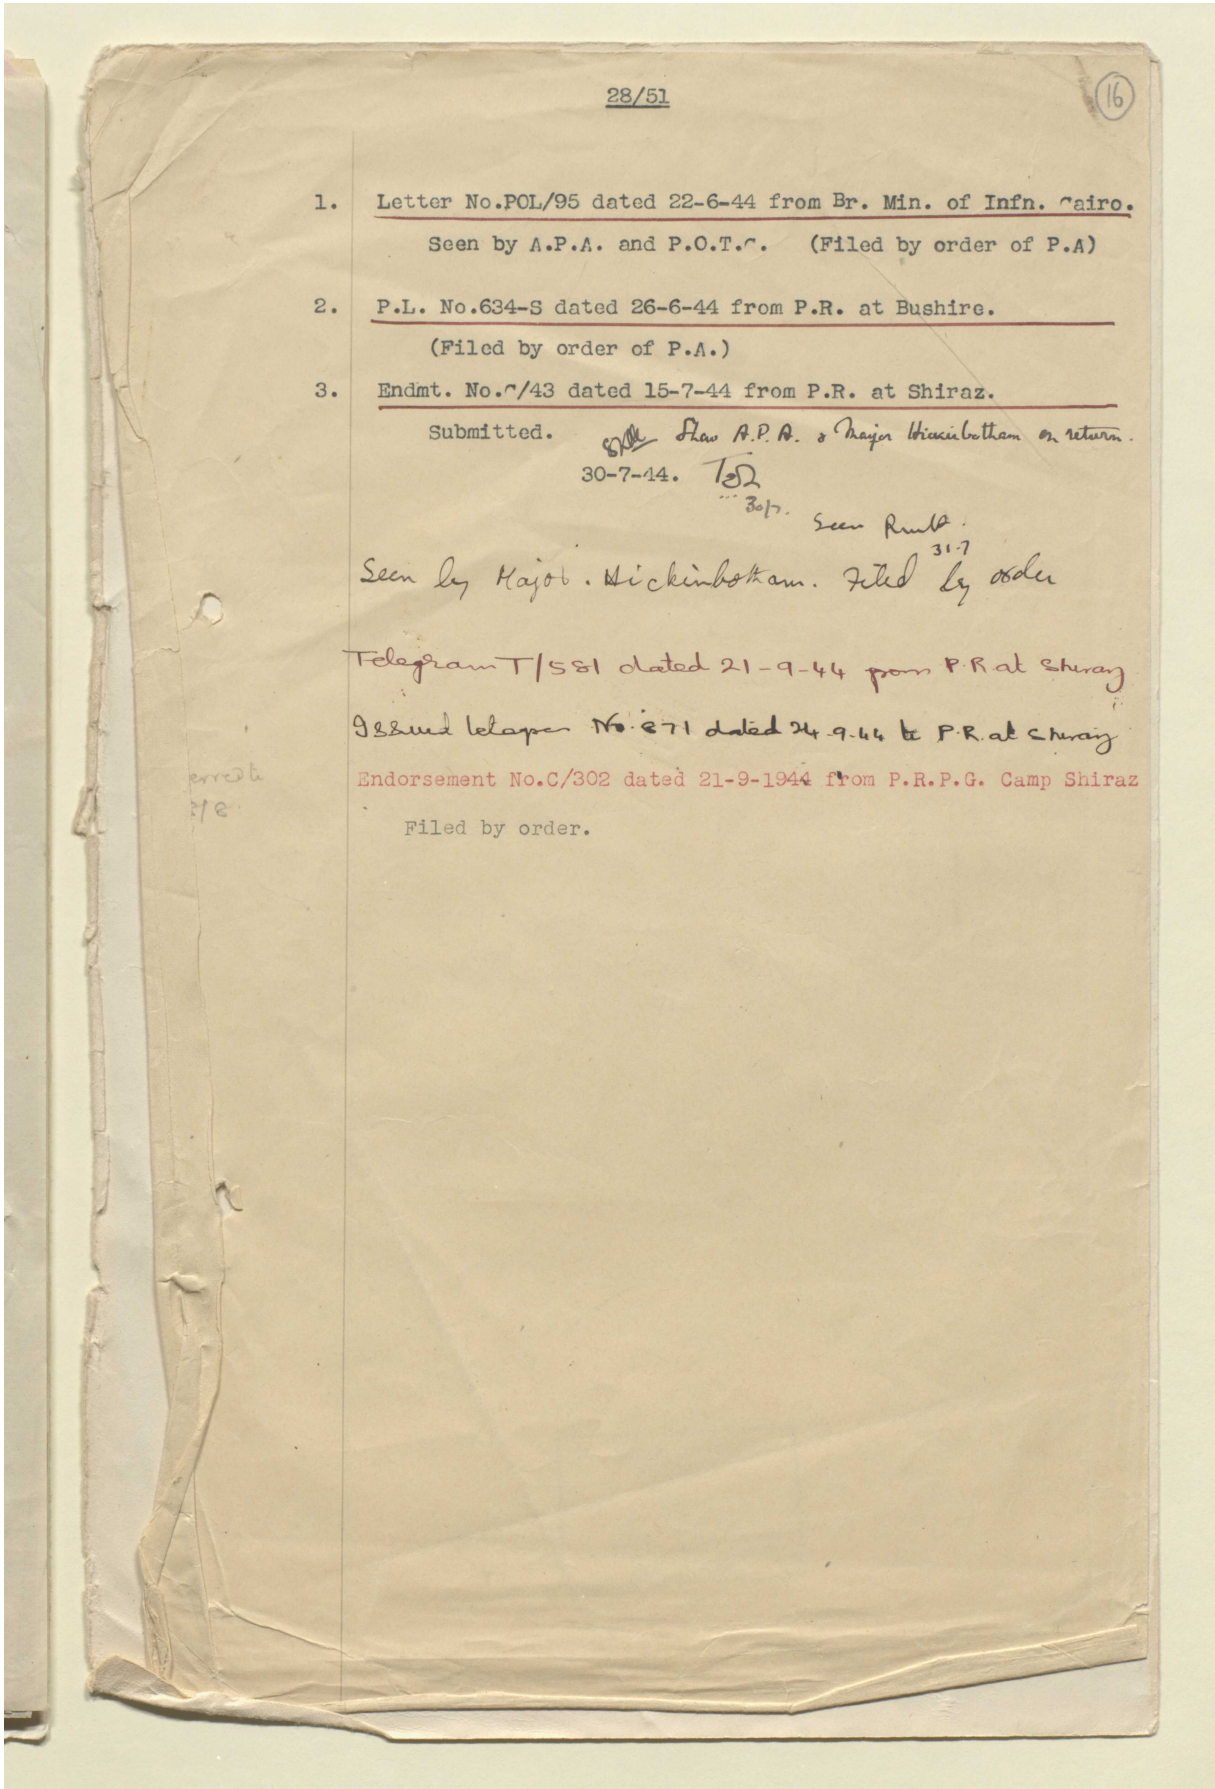 28/51
16
1. Letter No.POL/95 dated 22-6-44 from Br. Min. of Infn. Cairo.
Seen by A.P.A. and P.O.T.C. (Filed by order of P.A)
2. P.L. No.634-S dated 26-6-44 from P.R. at Bushire.
(Filed by order of P.A.)
3. Endmt. No.C/43 dated 15-7-44 from P.R. at Shiraz.
Submitted.
Show A.P.A. & Major Hickinbotham on return.
30-7-44.
30/7.
Seen
31.7
Seen by Major. Hickinbotham. Filed by order
Telegram T/581 dated 21-9-44 from P.R at Shiraz
Issued No. 871 dated 24-9-44 to P.R. at Shiraz
Endorsement No.C/302 dated 21-9-1944 from P.R.P.G. Camp Shiraz
Filed by order.